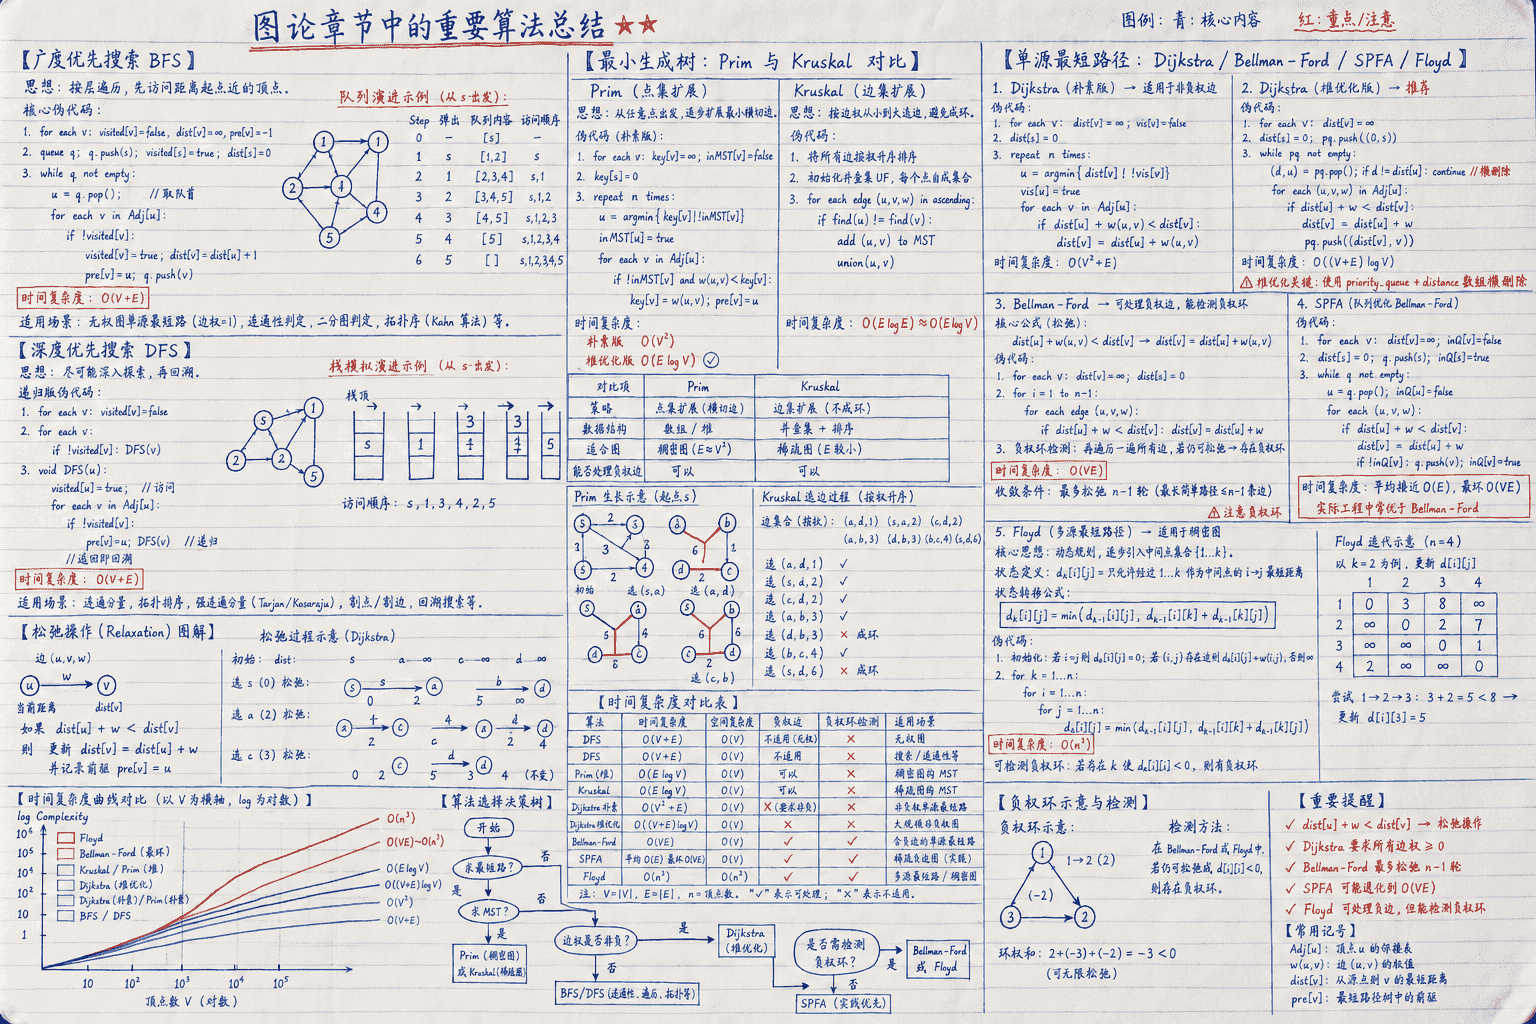 图论章节中的重要算法总结 ★★
图例: 青: 核心内容 红: 重点/注意
【广度优先搜索 BFS】
思想: 按层遍历, 先访问距离起点近的顶点.
核心伪代码:
1. for each v: visited[v]=false, dist[v]=∞, pre[v]=-1
2. queue q; q.push(s); visited[s]=true; dist[s]=0
3. while q not empty:
u = q.pop(); // 取队首
for each v in Adj[u]:
if !visited[v]:
visited[v]=true; dist[v]=dist[u]+1
pre[v]=u; q.push(v)
时间复杂度: O(V+E)
适用场景: 无权图单源最短路 (边权=1), 连通性判定, 二分图判定, 拓扑序 (Kahn 算法) 等.
队列演进示例 (从 s 出发):
1 1 2 4 4 5
Step 弹出 队列内容 访问顺序
0 — [s] —
1 s [1,2] s
2 1 [2,3,4] s,1
3 2 [3,4,5] s,1,2
4 3 [4,5] s,1,2,3
5 4 [5] s,1,2,3,4
6 5 [ ] s,1,2,3,4,5
【深度优先搜索 DFS】
思想: 尽可能深入探索, 再回溯.
递归版伪代码:
1. for each v: visited[v]=false
2. for each v:
if !visited[v]: DFS(v)
3. void DFS(u):
visited[u]=true; // 访问
for each v in Adj[u]:
if !visited[v]:
pre[v]=u; DFS(v) // 递归
// 返回即回溯
时间复杂度: O(V+E)
适用场景: 连通分量, 拓扑排序, 强连通分量 (Tarjan/Kosaraju), 割点/割边, 回溯搜索等.
栈模拟演进示例 (从 s 出发):
s 1 2 2 5
栈顶
s 1 3 3 5
访问顺序: s, 1, 3, 4, 2, 5
【松弛操作 (Relaxation) 图解】
边 (u,v,w)
u w v
当前距离 dist[v]
如果 dist[u] + w < dist[v]
则 更新 dist[v] = dist[u] + w
并记录前驱 pre[v] = u
松弛过程示意 (Dijkstra)
初始: dist: s a ∞ c ∞ d ∞
选 s (0) 松弛: s a b d
0 2 5 ∞
选 a (2) 松弛: c 4 d
2 c 2 4
选 c (3) 松弛: c d d
0 2 5 3 4 (不变)
【时间复杂度曲线对比 (以 V 为横轴, log 为对数)】
log Complexity
10⁶
10⁵
10⁴
10²
10
1
Floyd
Bellman-Ford (最坏)
Kruskal / Prim (堆)
Dijkstra (堆优化)
Dijkstra (朴素)/Prim(朴素)
BFS / DFS
O(n³)
O(VE)~O(n²)
O(E log V)
O((V+E) log V)
O(V²)
O(V+E)
10 10² 10³ 10⁴ 10⁵
顶点数 V (对数)
【最小生成树: Prim 与 Kruskal 对比】
Prim (点集扩展)
思想: 从任意点出发, 逐步扩展最小横切边.
伪代码 (朴素版):
1. for each v: key[v]=∞; inMST[v]=false
2. key[s]=0
3. repeat n times:
u = argmin{ key[v] | !inMST[v]}
inMST[u]=true
for each v in Adj[u]:
if !inMST[v] and w(u,v)<key[v]:
key[v] = w(u,v); pre[v]=u
时间复杂度:
朴素版 O(V²)
堆优化版 O(E log V) ✓
Kruskal (边集扩展)
思想: 按边权从小到大选边, 避免成环.
伪代码:
1. 将所有边按权升序排序
2. 初始化并查集 UF, 每个点自成集合
3. for each edge (u,v,w) in ascending:
if find(u) != find(v):
add (u,v) to MST
union(u,v)
时间复杂度: O(E log E) ≈ O(E log V)
对比项 Prim Kruskal
策略 点集扩展 (横切边) 边集扩展 (不成环)
数据结构 数组 / 堆 并查集 + 排序
适合图 稠密图 (E≈V²) 稀疏图 (E 较小)
能否处理负权边 可以 可以
Prim 生长示意 (起点 s)
S 2 3 3 3 S 2 4
a b 6 1 d 2 c
初始 选 (s,a) 选 (a,d)
S a 5 4 d 6 c
a b 5 6 c 2 d
选 (c,b)
Kruskal 选边过程 (按权升序)
边集合 (按权): (a,d,1) (s,a,2) (c,d,2)
(a,b,3) (d,b,3) (b,c,4) (s,d,6)
选 (a,d,1) ✓
选 (s,d,2) ✓
选 (c,d,2) ✓
选 (a,b,3) ✓
选 (d,b,3) × 成环
选 (b,c,4) ✓
选 (s,d,6) × 成环
【时间复杂度对比表】
算法 时间复杂度 空间复杂度 负权边 负权环检测 适用场景
DFS O(V+E) O(V) 不适用 (无权) × 无权图
DFS O(V+E) O(V) 不适用 × 搜索 / 连通性等
Prim (堆) O(E log V) O(V) 可以 × 稠密图的 MST
Kruskal O(E log E) O(V) 可以 × 稀疏图的 MST
Dijkstra 朴素 O(V² + E) O(V) × (要求非负) × 非负权单源最短路
Dijkstra 堆优化 O((V+E) log V) O(V) × × 大规模非负权图
Bellman-Ford O(VE) O(V) ✓ ✓ 含负边的单源最短路
SPFA 平均 O(E) 最坏 O(VE) O(V) ✓ ✓ 稀疏负边图 (实际)
Floyd O(n³) O(n²) ✓ ✓ 多源最短路 / 稠密图
注: V=|V|, E=|E|, n=顶点数. "✓" 表示可处理; "×" 表示不适用.
【算法选择决策树】
开始
求最短路?
否
是
求 MST?
是
Prim (稠密图)
或 Kruskal (稀疏图)
边权是否非负?
是
否
BFS/DFS (连通性、遍历、拓扑等)
Dijkstra
(堆优化)
是否需检测
负权环?
是
否
Bellman-Ford
或 Floyd
SPFA (实践优先)
【单源最短路径: Dijkstra / Bellman-Ford / SPFA / Floyd】
1. Dijkstra (朴素版) → 适用于非负权边
伪代码:
1. for each v: dist[v] = ∞; vis[v]=false
2. dist[s] = 0
3. repeat n times:
u = argmin{ dist[v] | !vis[v]}
vis[u] = true
for each v in Adj[u]:
if dist[u] + w(u,v) < dist[v]:
dist[v] = dist[u] + w(u,v)
时间复杂度: O(V²+E)
2. Dijkstra (堆优化版) → 推荐
伪代码:
1. for each v: dist[v] = ∞
2. dist[s] = 0; pq.push((0, s))
3. while pq not empty:
(d, u) = pq.pop(); if d != dist[u]: continue // 懒删除
for each (u,v,w) in Adj[u]:
if dist[u] + w < dist[v]:
dist[v] = dist[u] + w
pq.push((dist[v], v))
时间复杂度: O((V+E) log V)
⚠ 堆优化关键: 使用 priority_queue + distance 数组懒删除
3. Bellman-Ford → 可处理负权边, 能检测负权环
核心公式 (松弛):
dist[u] + w(u,v) < dist[v] → dist[v] = dist[u] + w(u,v)
伪代码:
1. for each v: dist[v] = ∞; dist[s] = 0
2. for i = 1 to n-1:
for each edge (u,v,w):
if dist[u] + w < dist[v]: dist[v] = dist[u]+w
3. 负权环检测: 再遍历一遍所有边, 若仍可松弛→存在负权环
时间复杂度: O(VE)
收敛条件: 最多松弛 n-1 轮 (最长简单路径 ≤n-1 条边)
⚠ 注意负权环
4. SPFA (队列优化 Bellman-Ford)
伪代码:
1. for each v: dist[v]=∞; inQ[v]=false
2. dist[s]=0; q.push(s); inQ[s]=true
3. while q not empty:
u = q.pop(); inQ[u]=false
for each (u,v,w):
if dist[u] + w < dist[v]:
dist[v] = dist[u] + w
if !inQ[v]: q.push(v); inQ[v]=true
时间复杂度: 平均接近 O(E), 最坏 O(VE)
实际工程中常优于 Bellman-Ford
5. Floyd (多源最短路径) → 适用于稠密图
核心思想: 动态规划, 逐步引入中间点集合 {1...k}.
状态定义: dₖ[i][j] = 只允许经过 1...k 作为中间点的 i→j 最短距离
状态转移公式:
dₖ[i][j] = min(dₖ₋₁[i][j], dₖ₋₁[i][k] + dₖ₋₁[k][j])
伪代码:
1. 初始化: 若 i=j 则 d₀[i][j]=0; 若 (i,j) 存在边则 d₀[i][j]=w(i,j), 否则∞
2. for k = 1...n:
for i = 1...n:
for j = 1...n:
dₖ[i][j] = min(dₖ₋₁[i][j], dₖ₋₁[i][k] + dₖ₋₁[k][j])
时间复杂度: O(n³)
可检测负权环: 若存在 k 使 dₖ[i][i] < 0, 则有负权环
Floyd 迭代示意 (n=4)
以 k=2 为例, 更新 d[i][j]
1 2 3 4
1 0 3 8 ∞
2 ∞ 0 2 7
3 ∞ ∞ 0 1
4 2 ∞ ∞ 0
尝试 1→2→3: 3+2=5 < 8 →
更新 d[i][3] = 5
【负权环示意与检测】
负权环示意:
1
1→2 (2)
(-2)
3 2
环权和: 2+(-3)+(-2) = -3 < 0
(可无限松弛)
检测方法:
在 Bellman-Ford 或 Floyd 中,
若仍可松弛或 d[i][i]<0,
则存在负权环.
【重要提醒】
✓ dist[u] + w < dist[v] → 松弛操作
✓ Dijkstra 要求所有边权 ≥ 0
✓ Bellman-Ford 最多松弛 n-1 轮
✓ SPFA 可能退化到 O(VE)
✓ Floyd 可处理负边, 但能检测负权环
【常用记号】
Adj[u]: 顶点 u 的邻接表
w(u,v): 边 (u,v) 的权值
dist[v]: 从源点到 v 的最短距离
pre[v]: 最短路径树中的前驱